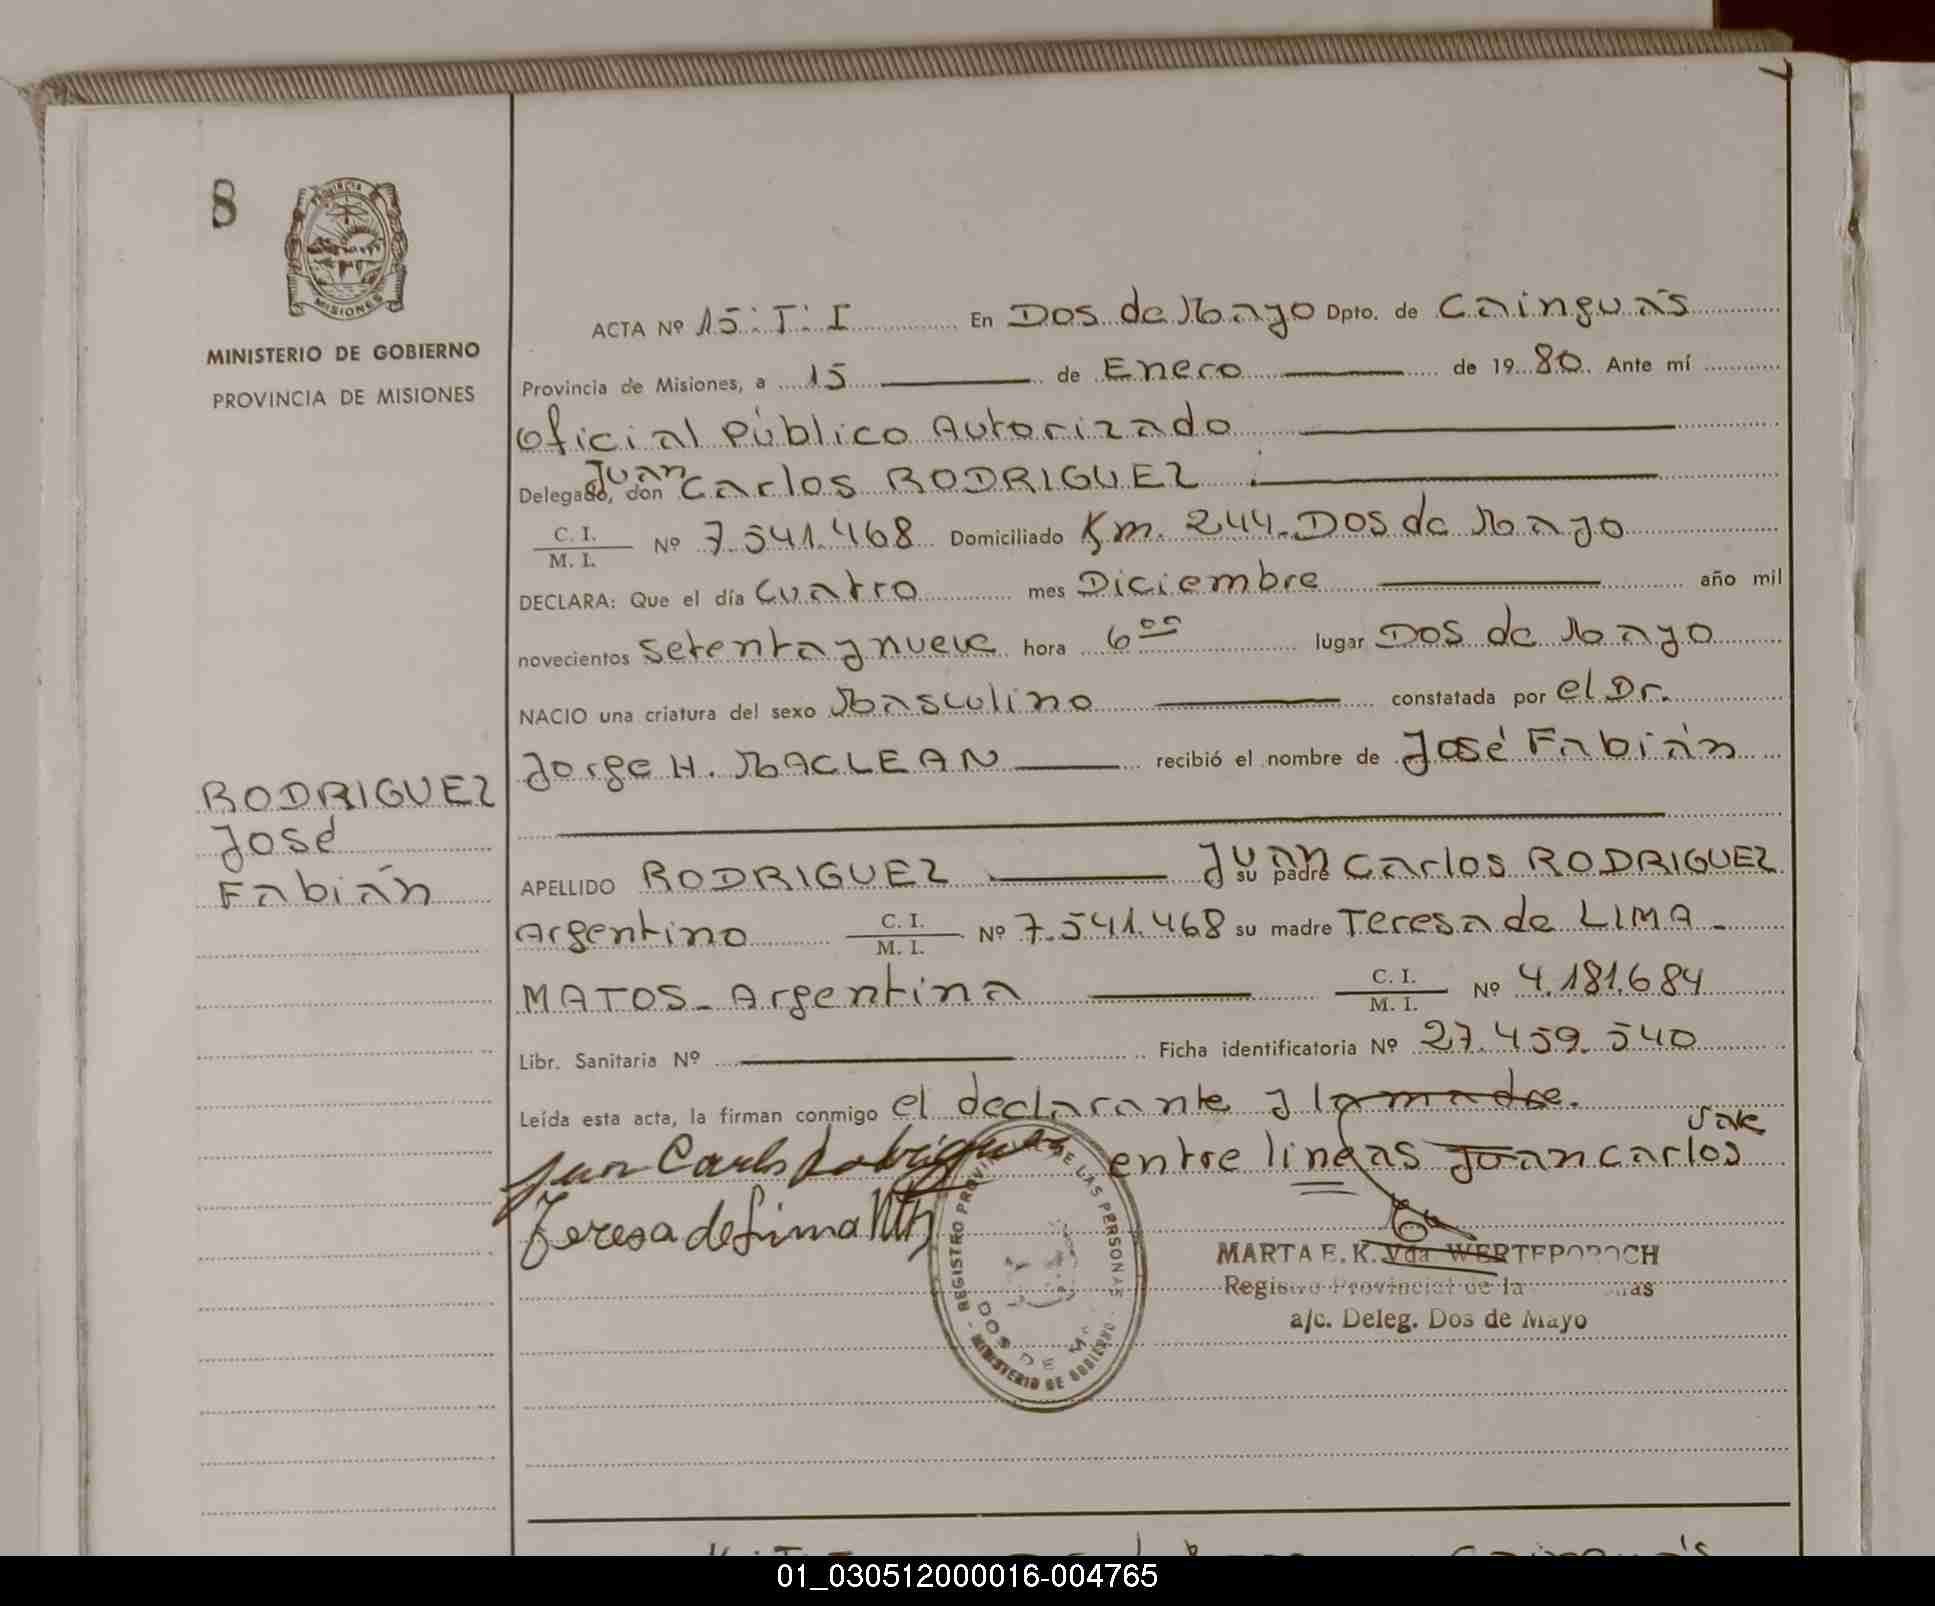 8
PROVINCIA
MISIONES
MINISTERIO DE GOBIERNO
PROVINCIA DE MISIONES
RODRIGUEZ
José
Fabián
ACTA Nº 15: T: I En Dos de Mayo Dpto. de Cainguás
Provincia de Misiones, a 15 de Enero de 1980. Ante mí
Oficial Público Autorizado
Delegado, don Juan Carlos RODRIGUEZ
C. I.
M. I. Nº 7.541.468 Domiciliado Km. 244. Dos de Mayo
DECLARA: Que el día Cuatro mes Diciembre año mil
novecientos setenta y nueve hora 6 00 lugar Dos de Mayo
NACIO una criatura del sexo Masculino constatada por el Dr.
Jorge H. MACLEAN recibió el nombre de José Fabián
APELLIDO RODRIGUEZ su padre Juan Carlos RODRIGUEZ
Argentino C. I. M. I. Nº 7.541.468 su madre Teresa de LIMA -
MATOS - Argentina C. I. M. I. Nº 4.181.684
Libr. Sanitaria Nº Ficha identificatoria Nº 27.459.540
Leída esta acta, la firman conmigo el declarante y la madre.
Vale
Juan Carlos Rodriguez entre lineas Juan Carlos
Teresa de Lima
REGISTRO PROVINCIAL DE LAS PERSONAS
MINISTERIO DE GOBIERNO
DOS DE
MARTA E. K. Vda WERTEPOROCH
Registro Provincial de la
a/c. Deleg. Dos de Mayo
01_030512000016-004765